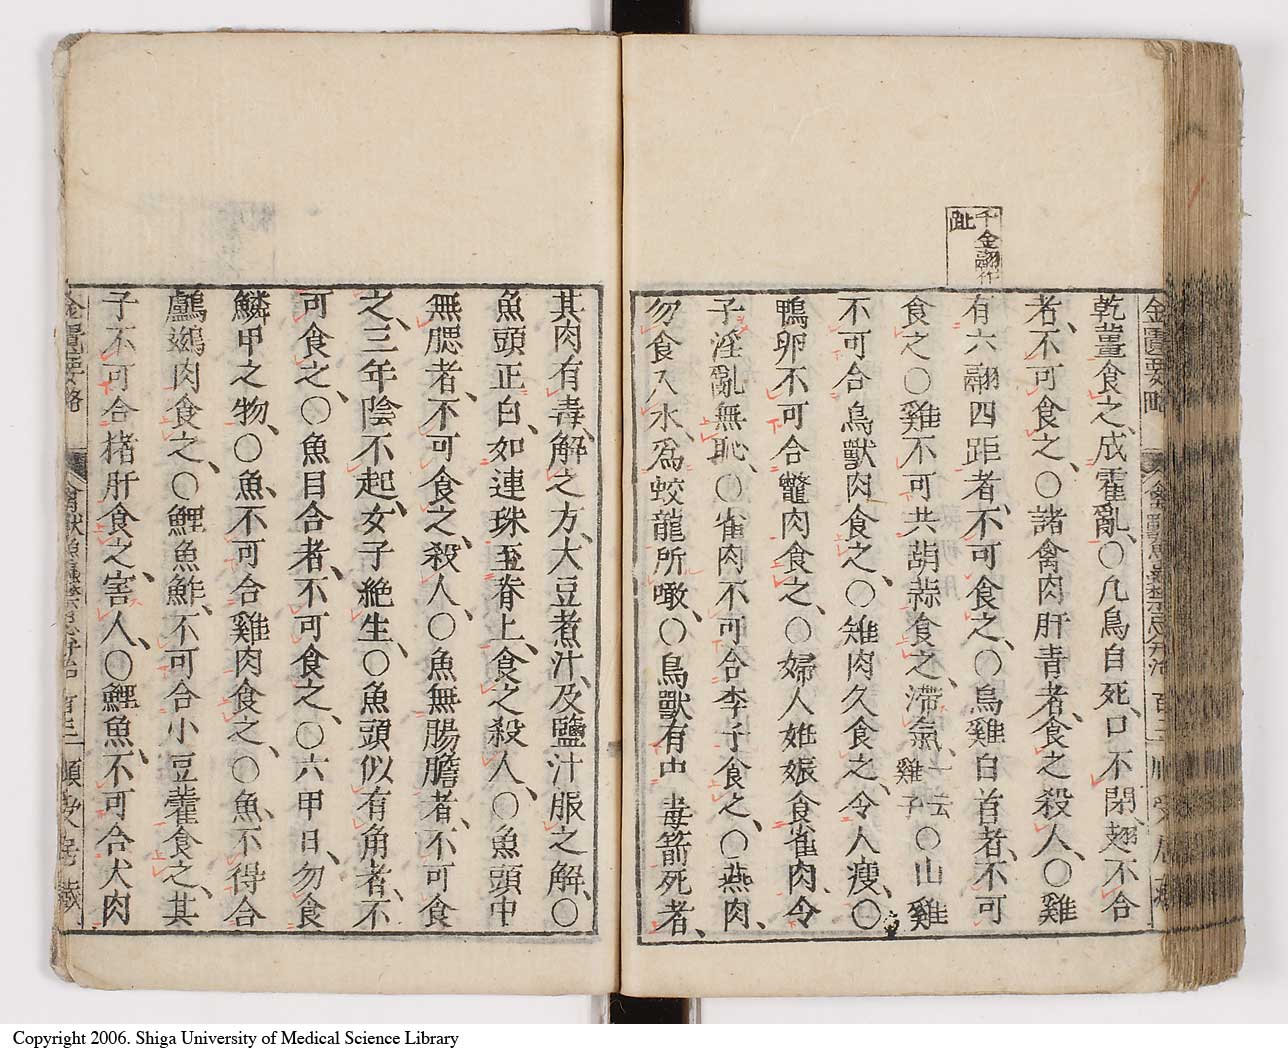 千金翮作
趾
金匱要略
乾薑食之、成霍亂、〇凡鳥自死、口不閉、翅不合
者、不可食之、〇諸禽肉肝青者、食之殺人、〇雞
有六翮四距者、不可食之、〇烏雞白首者、不可
食之〇雞不可共葫蒜食之、滯氣、一云雞子〇山雞
不可合鳥獸肉食之、〇雉肉久食之、令人瘦、〇
鴨卵不可合鼈肉食之、〇婦人姙娠食雀肉、令
子淫亂無恥、〇雀肉不可合李子食之、〇燕肉、
勿食入水、爲蛟龍所噉、〇鳥獸有中毒箭死者、
其肉有毒、解之方、大豆煮汁、及鹽汁服之解、〇
魚頭正白、如連珠至脊上、食之殺人、〇魚頭中
無腮者、不可食之、殺人、〇魚無腸膽者、不可食
之、三年陰不起、女子絶生、〇魚頭似有角者、不
可食之、〇魚目合者、不可食之、〇六甲日、勿食
鱗甲之物、〇魚、不可合雞肉食之、〇魚、不得合
鸕鷀肉食之、〇鯉魚鮓、不可合小豆藿食之、其
子不可合猪肝食之、害人、〇鯉魚、不可合犬肉
金匱要略 禽獸魚蟲禁忌 百三
Copyright 2006. Shiga University of Medical Science Library